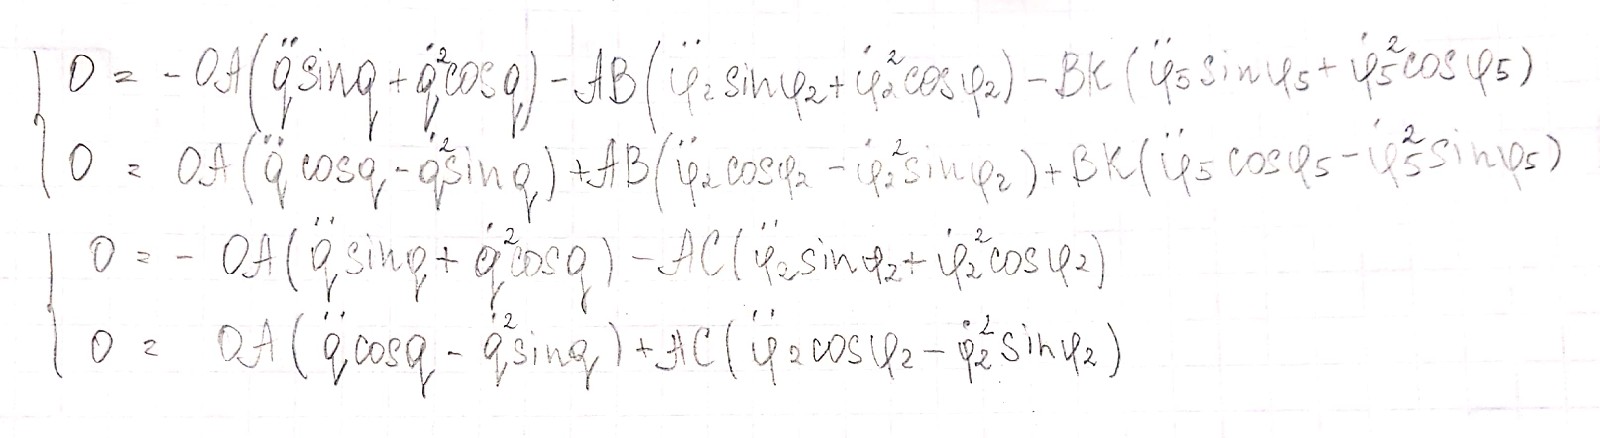 0 = - OA(q̈ sinq + q̇² cosq) - AB(φ̈₂ sinφ₂ + φ̇₂² cosφ₂) - BK(φ̈₅ sinφ₅ + φ̇₅² cosφ₅)
0 = OA(q̈ cosq - q̇² sinq) + AB(φ̈₂ cosφ₂ - φ̇₂² sinφ₂) + BK(φ̈₅ cosφ₅ - φ̇₅² sinφ₅)
0 = - OA(q̈ sinq + q̇² cosq) - AC(φ̈₂ sinφ₂ + φ̇₂² cosφ₂)
0 = OA(q̈ cosq - q̇² sinq) + AC(φ̈₂ cosφ₂ - φ̇₂² sinφ₂)